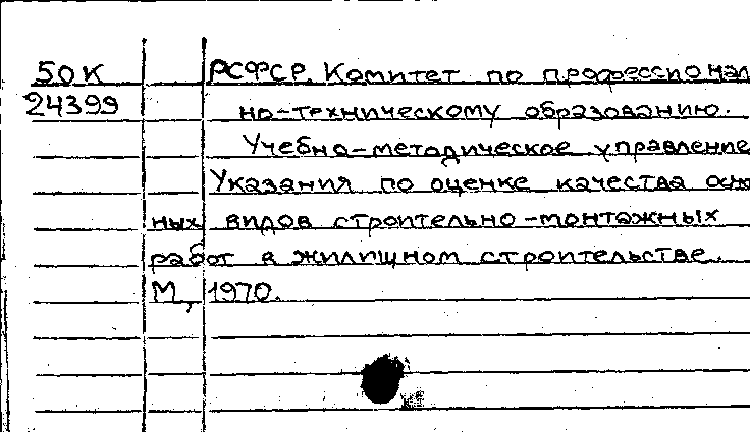 50К РСФСР. Комитет по профессионал
24399 но-техническому образованию.
Учебно-методическое управление
Указания по оценке качества осно
ных видов строительно-монтажных
работ в жилищном строительстве.
М., 1970.